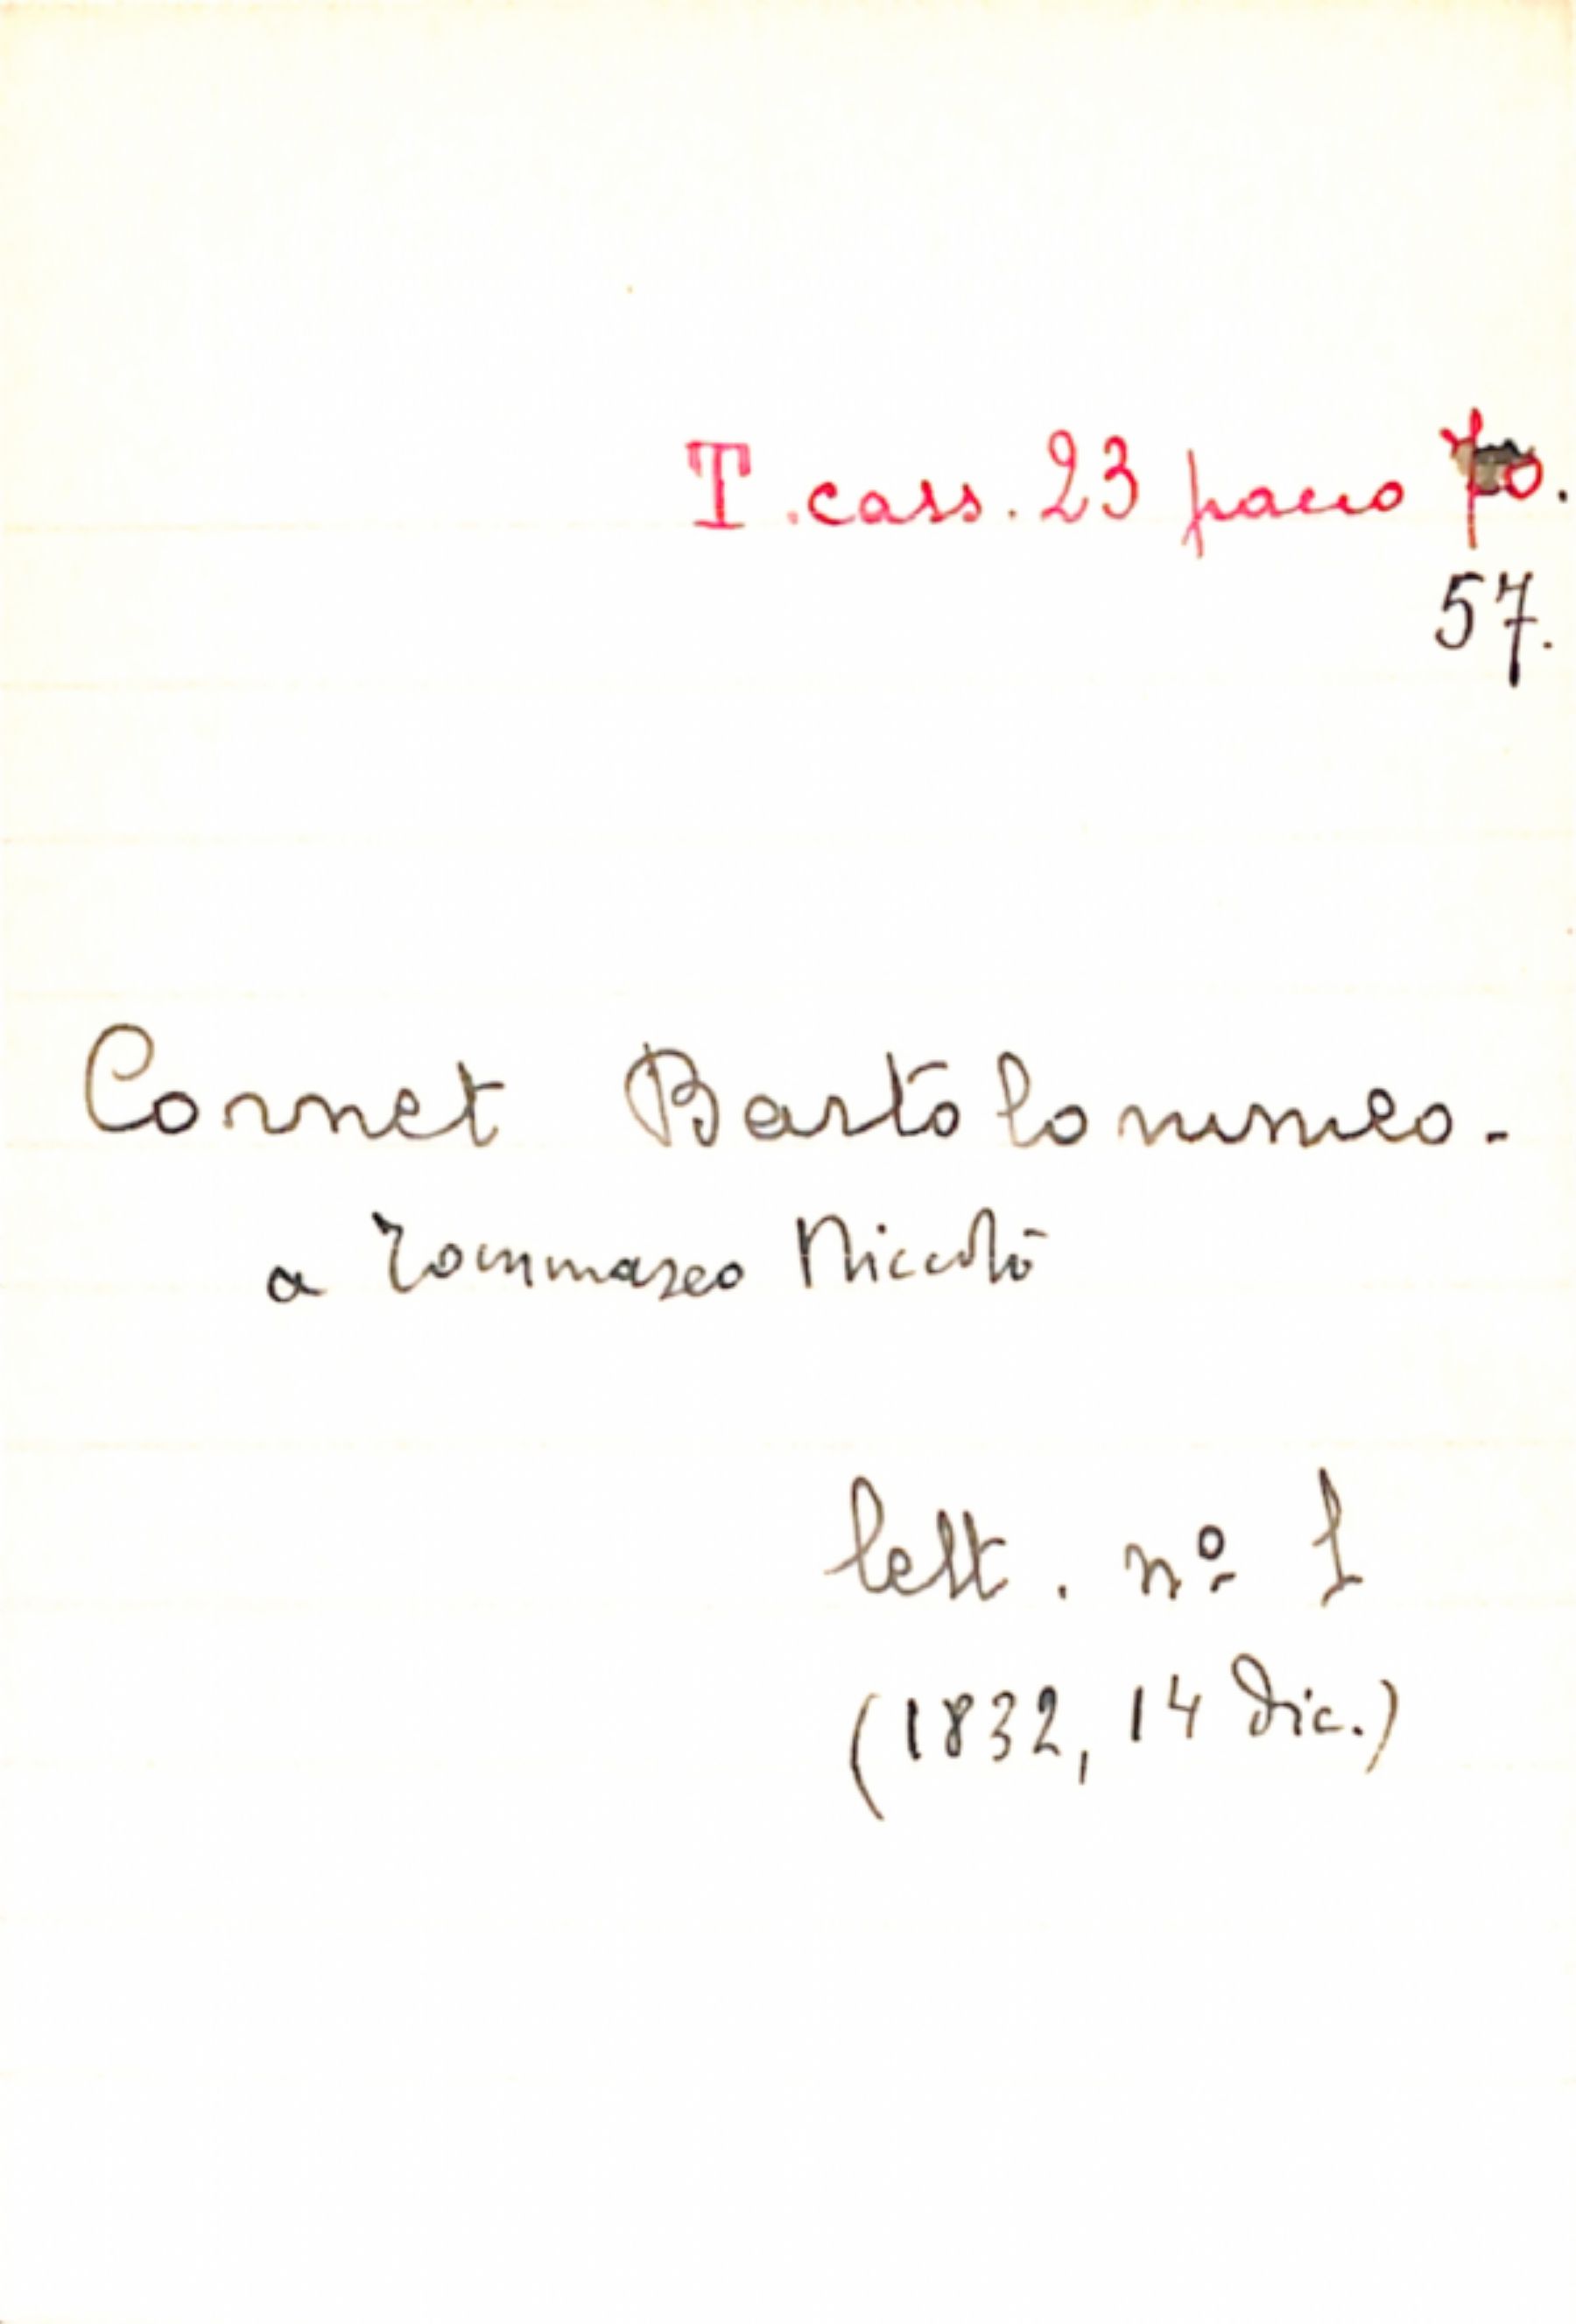 T. cass. 23 pacco 70.
57.
Cornet Bartolommeo.
a Tommaseo Niccolò
lett. nº 1
(1832, 14 dic.)